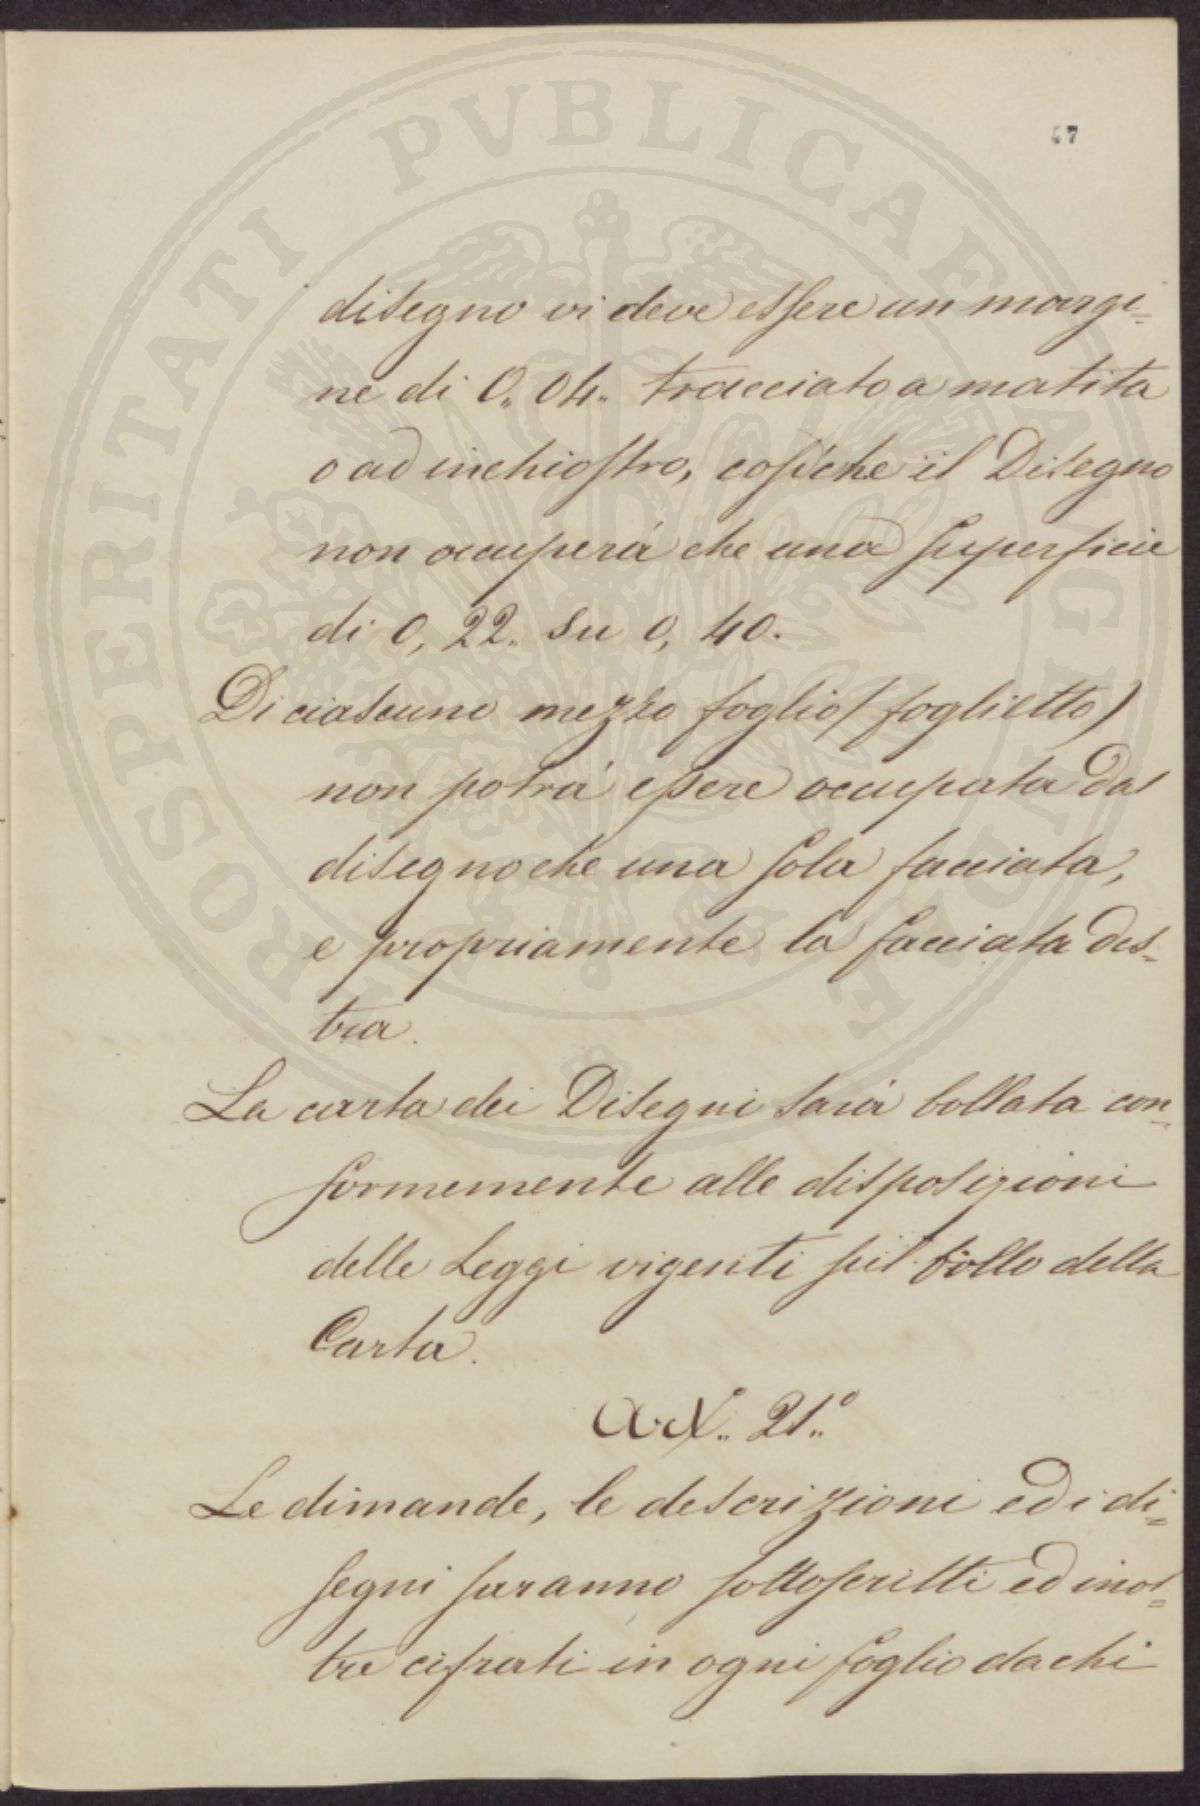 PROSPERITATI PVBLICAE AVGENDAE
47
disegno vi deve essere un margi=
ne di 0,, 04,, tracciato a matita
o ad inchiostro, cosiche il Disegno
non occuperá che una superficie
di 0, 22,, su 0, 40.
Di ciascuno mezzo foglio (foglietto)
non potrá essere occupata dal
disegno che una sola facciata,
e propriamente la facciata des=
tra.
La carta dei Disegni sará bollata con=
formemente alle disposizioni
delle Leggi vigenti sul bollo della
Carta.
Art,, 21,,°
Le dimande, le descrizioni ed i di=
segni saranno sottoscritti ed inol=
tre cifrati in ogni foglio da chi